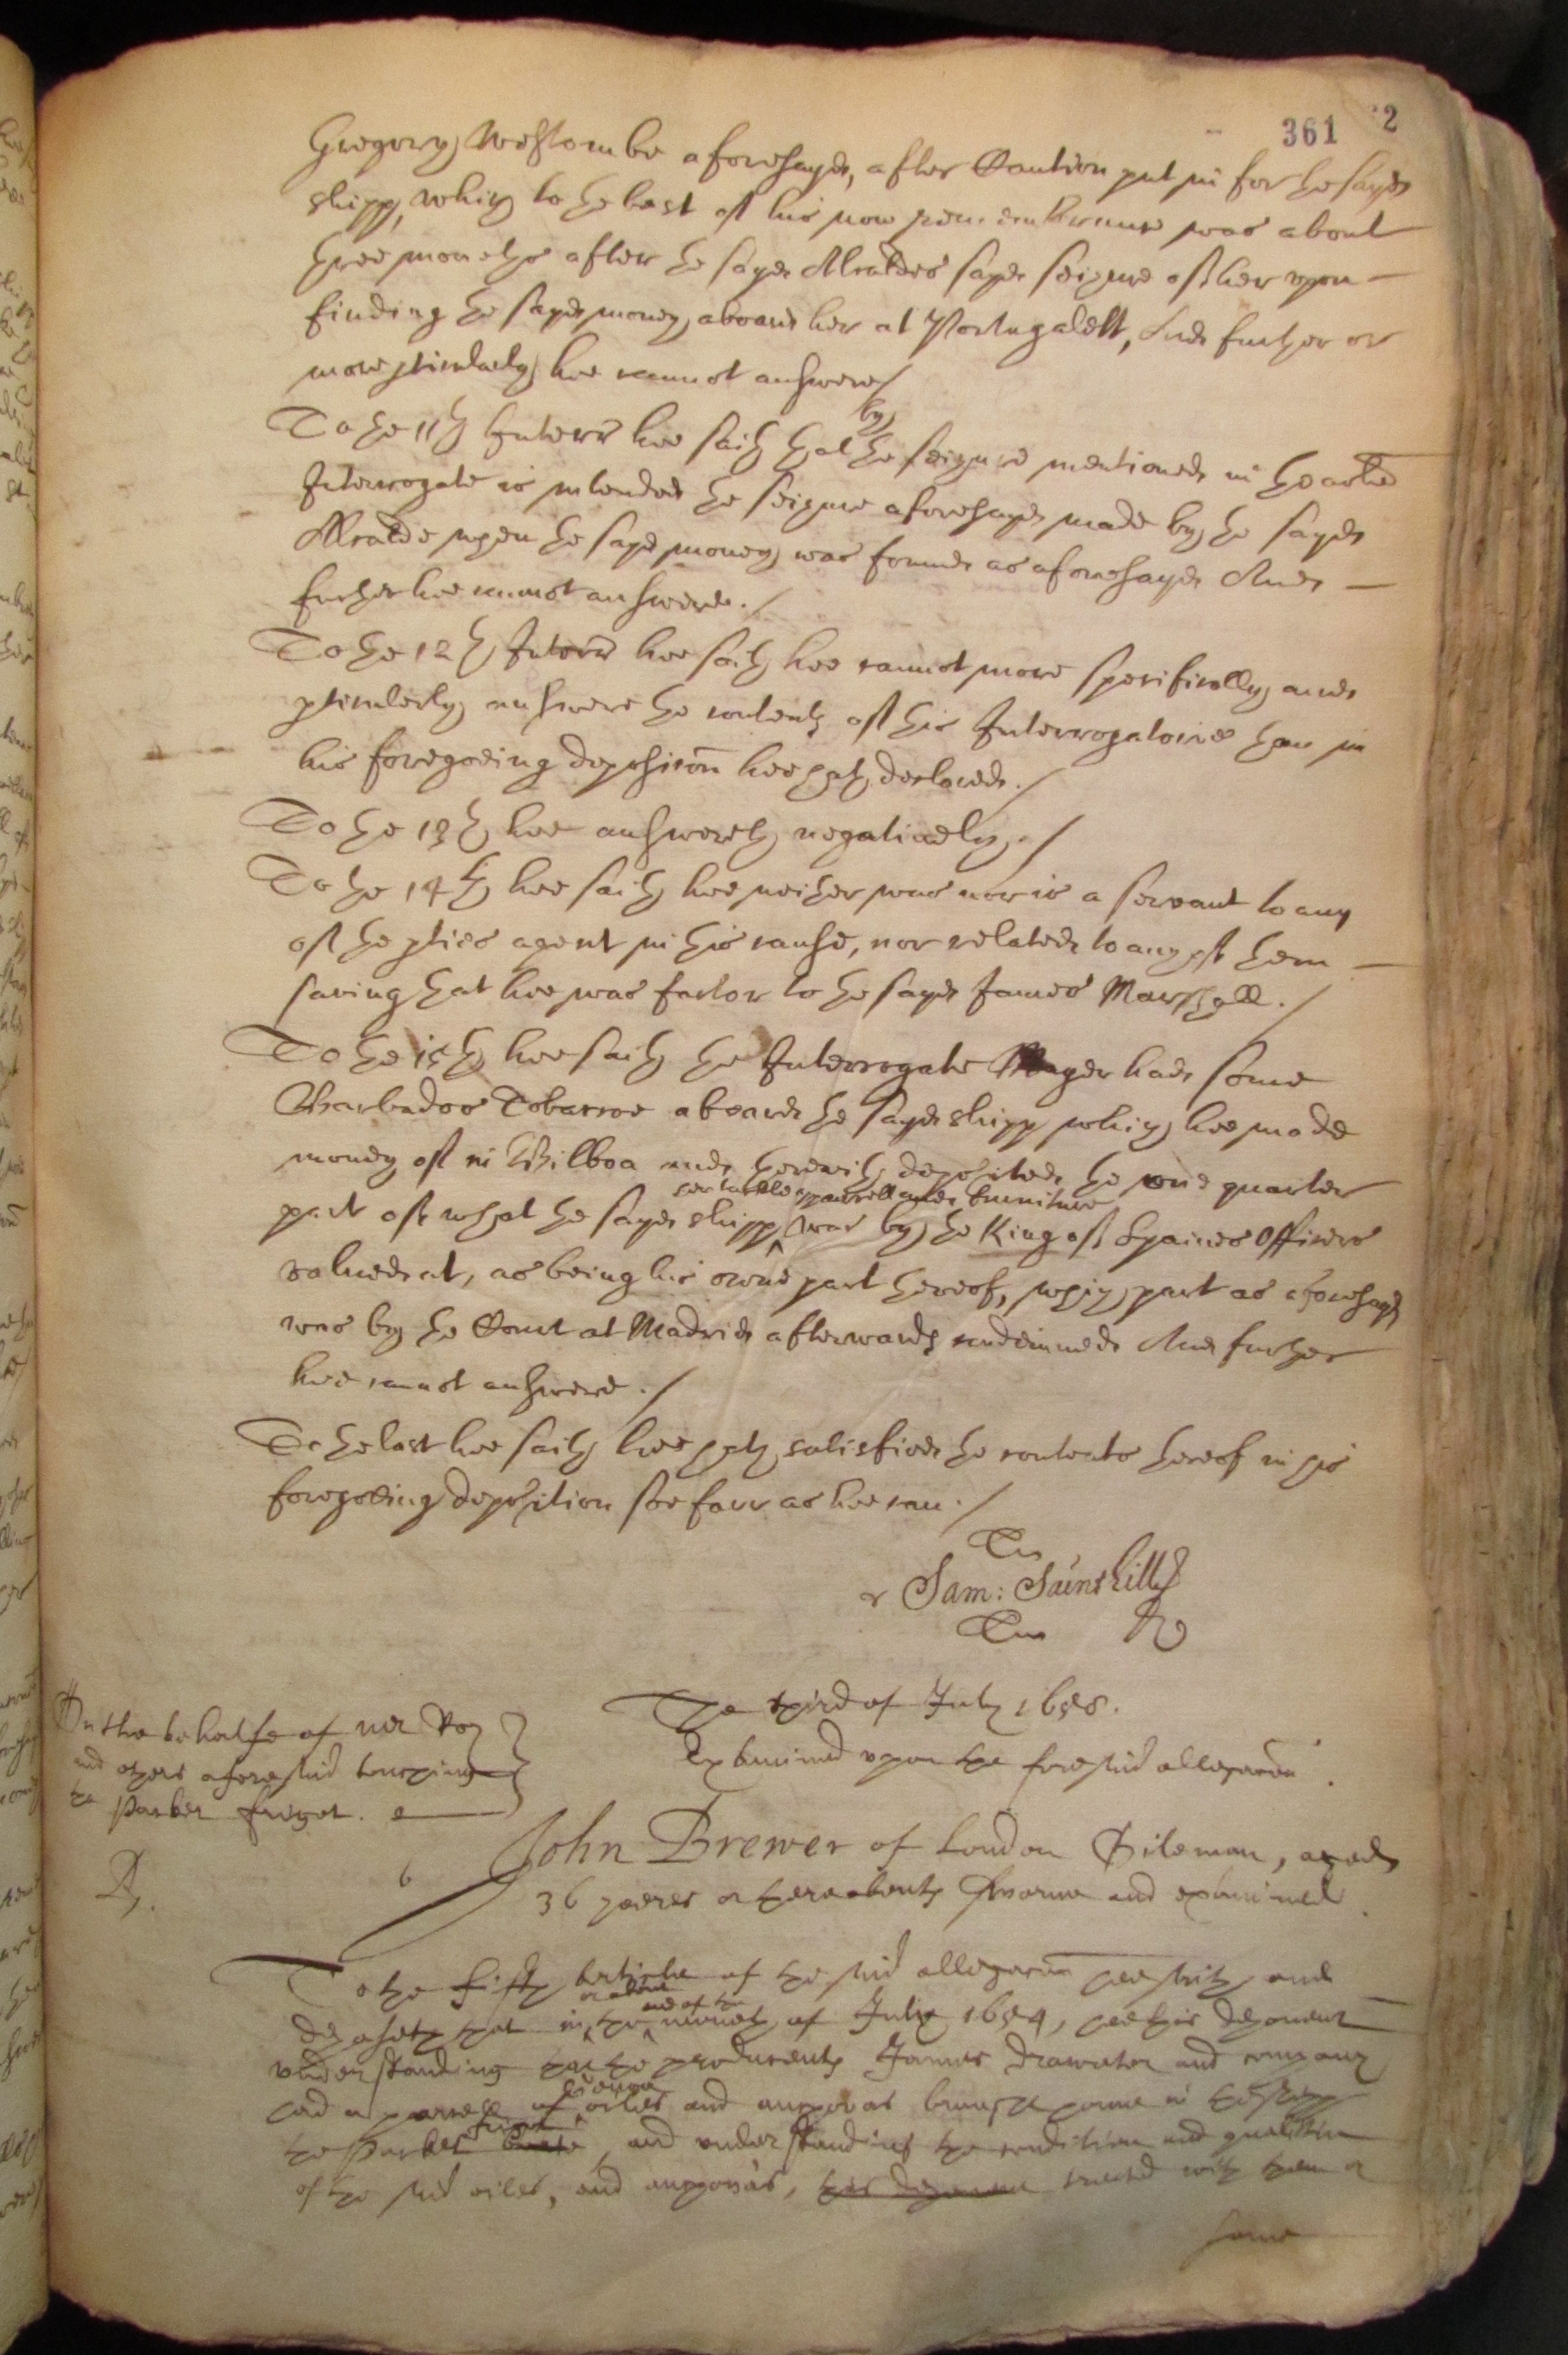 361
Gregory Westcombe aforesayd, after Caution put in for the sayd
shipp, which to the best of his now remembrance was about
three moneths after the sayd Alcaldes sayd seizure of her upon
finding the sayd money aboard her at Portugalett, And further or
more pticularly hee cannot answere./
To the 11th Interr hee saith that by the seizure mentioned in the
Interrogate is intended the seizure aforesayd made by the sayd
Alcalde upon the sayd money was found as aforesayd And
further hee cannot answere./
To the 12th Interr hee saith hee cannot more specifically and
pticulerly answere the contents of this Interrogatorie than in
his foregoeing deposicon hee hath declared./
To the 13th hee answereth negatively./
To the 14th hee saith hee neither was nor is a servant to any
of the pties agent in this cause, nor related to any of them
saving that hee was factor to the sayd James Marshall./
To the 15th hee saith the Interrogate Mager had some
Barbados Tobaccoe aboard the sayd shipp which hee made
money of in Bilboa and therewith deposited the one quarter
her tackle apparrell and furniture
part of what the sayd shipp was by the King of Spaines Officers
valued at, as being his owne part thereof, which part as aforesayd
was by the Court at Madrid afterwards condemned And further
hee cannot answere./
To the last hee saith hee hath satisfied the contents thereof in his
foregoeing deposition soe farr as hee can./
Sam: Sainthill
The third of July 1658.
Examined upon the foresaid allegacon.
On the behalfe of
and others aforesaid touching
the Parker frigot.
John Brewer of London Oileman, aged
36 yeeres or thereabouts sworne and examined
To the fifth article of the said allegacon hee saith and
or about end of the
deposeth that in the moneth of July 1654, hee this deponent
understanding that the producents James Drawater and company
had a parcell of oiles and anchovas brought home in the shipp
frigot
the Parker, and understanding the condition and qualitie
of the said oiles, and anchovas, this deponent treated with them
some